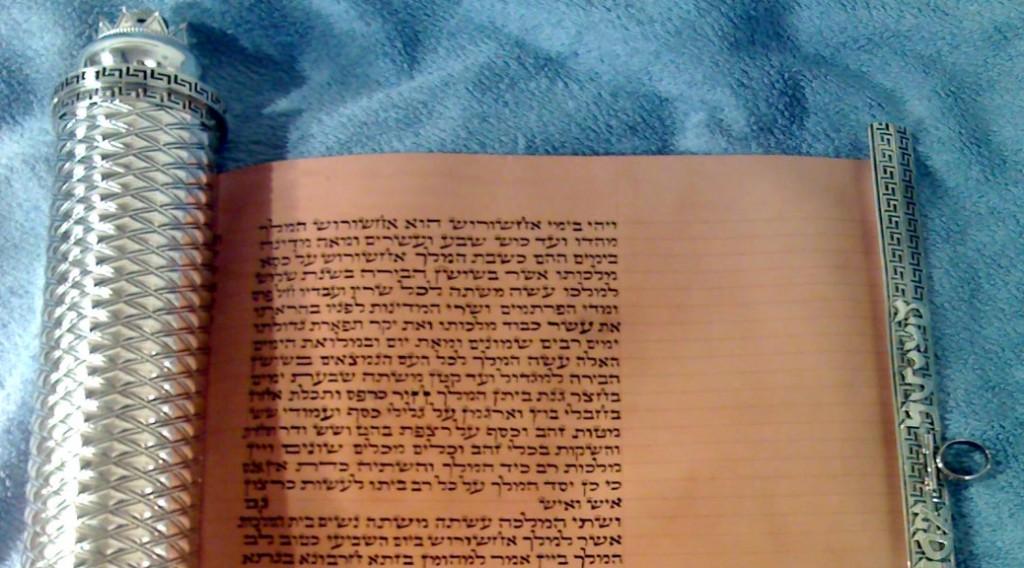 ויהי בימי אחשורוש הוא אחשורוש המלך
מהדו ועד כוש שבע ועשרים ומאה מדינה
בימים ההם כשבת המלך אחשורוש על כסא
מלכותו אשר בשושן הבירה בשנת שלוש
למלכו עשה משתה לכל שריו ועבדיו חיל פרס
ומדי הפרתמים ושרי המדינות לפניו בהראתו
את עשר כבוד מלכותו ואת יקר תפארת גדולתו
ימים רבים שמונים ומאת יום ובמלואת הימים
האלה עשה המלך לכל העם הנמצאים בשושן
הבירה למגדול ועד קטן משתה שבעת ימים
בחצר גנת ביתן המלך חור כרפס ותכלת אחוז
בחבלי בוץ וארגמן על גלילי כסף ועמודי שש
מטות זהב וכסף על רצפת בהט ושש ודר וסחרת
והשקות בכלי זהב וכלים מכלים שונים ויין
מלכות רב כיד המלך והשתיה כדת אין אנס
כי כן יסד המלך על כל רב ביתו לעשות כרצון
איש ואיש גם
ושתי המלכה עשתה משתה נשים בית המלכות
אשר למלך אחשורוש ביום השביעי כטוב לב
המלך ביין אמר למהומן בזתא חרבונא בגתא